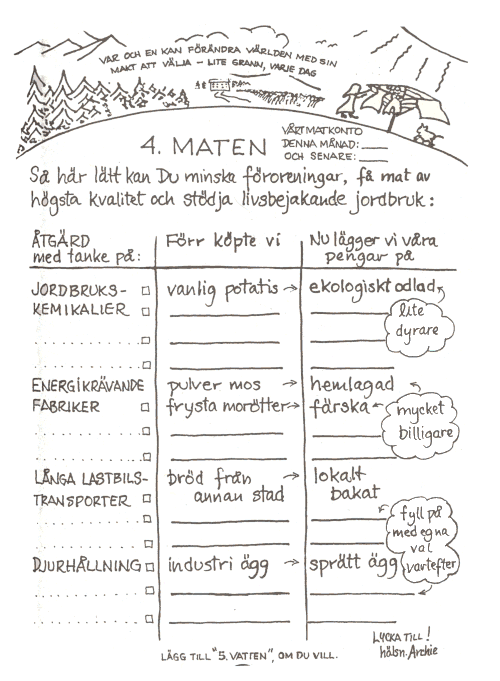 VAR OCH EN KAN FÖRÄNDRA VÄRLDEN MED SIN
MAKT ATT VÄLJA - LITE GRANN, VARJE DAG
4. MATEN
VÅRT MATKONTO
DENNA MÅNAD: ____
OCH SENARE: ____
Så här lätt kan Du minska föroreningar, få mat av
högsta kvalitet och stödja livsbejakande jordbruk:
ÅTGÄRD
med tanke på:
Förr köpte vi
Nu lägger vi våra
pengar på
JORDBRUKS-
KEMIKALIER
vanlig potatis → ekologiskt odlad
lite
dyrare
ENERGIKRÄVANDE
FABRIKER
pulver mos → hemlagad
frysta morötter → färska
mycket
billigare
LÅNGA LASTBILS-
TRANSPORTER
bröd från → lokalt
annan stad bakat
fyll på
med egna
val
vartefter
DJURHÅLLNING
industri ägg → sprätt ägg
LYCKA TILL!
hälsn. Archie
LÄGG TILL "5. VATTEN", OM DU VILL.